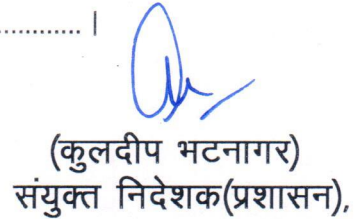 ............. |
(कुलदीप भटनागर)
संयुक्त निदेशक(प्रशासन),